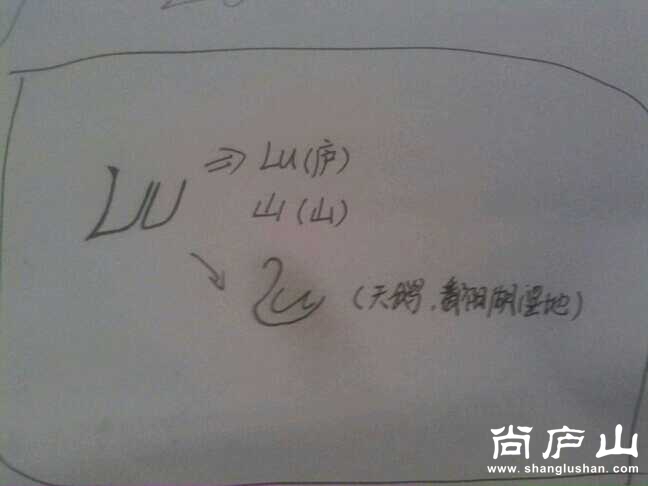 LU ⇒ LU(庐)
山(山)
(天鹅.鄱阳湖湿地)
尚庐山
www.shanglushan.com